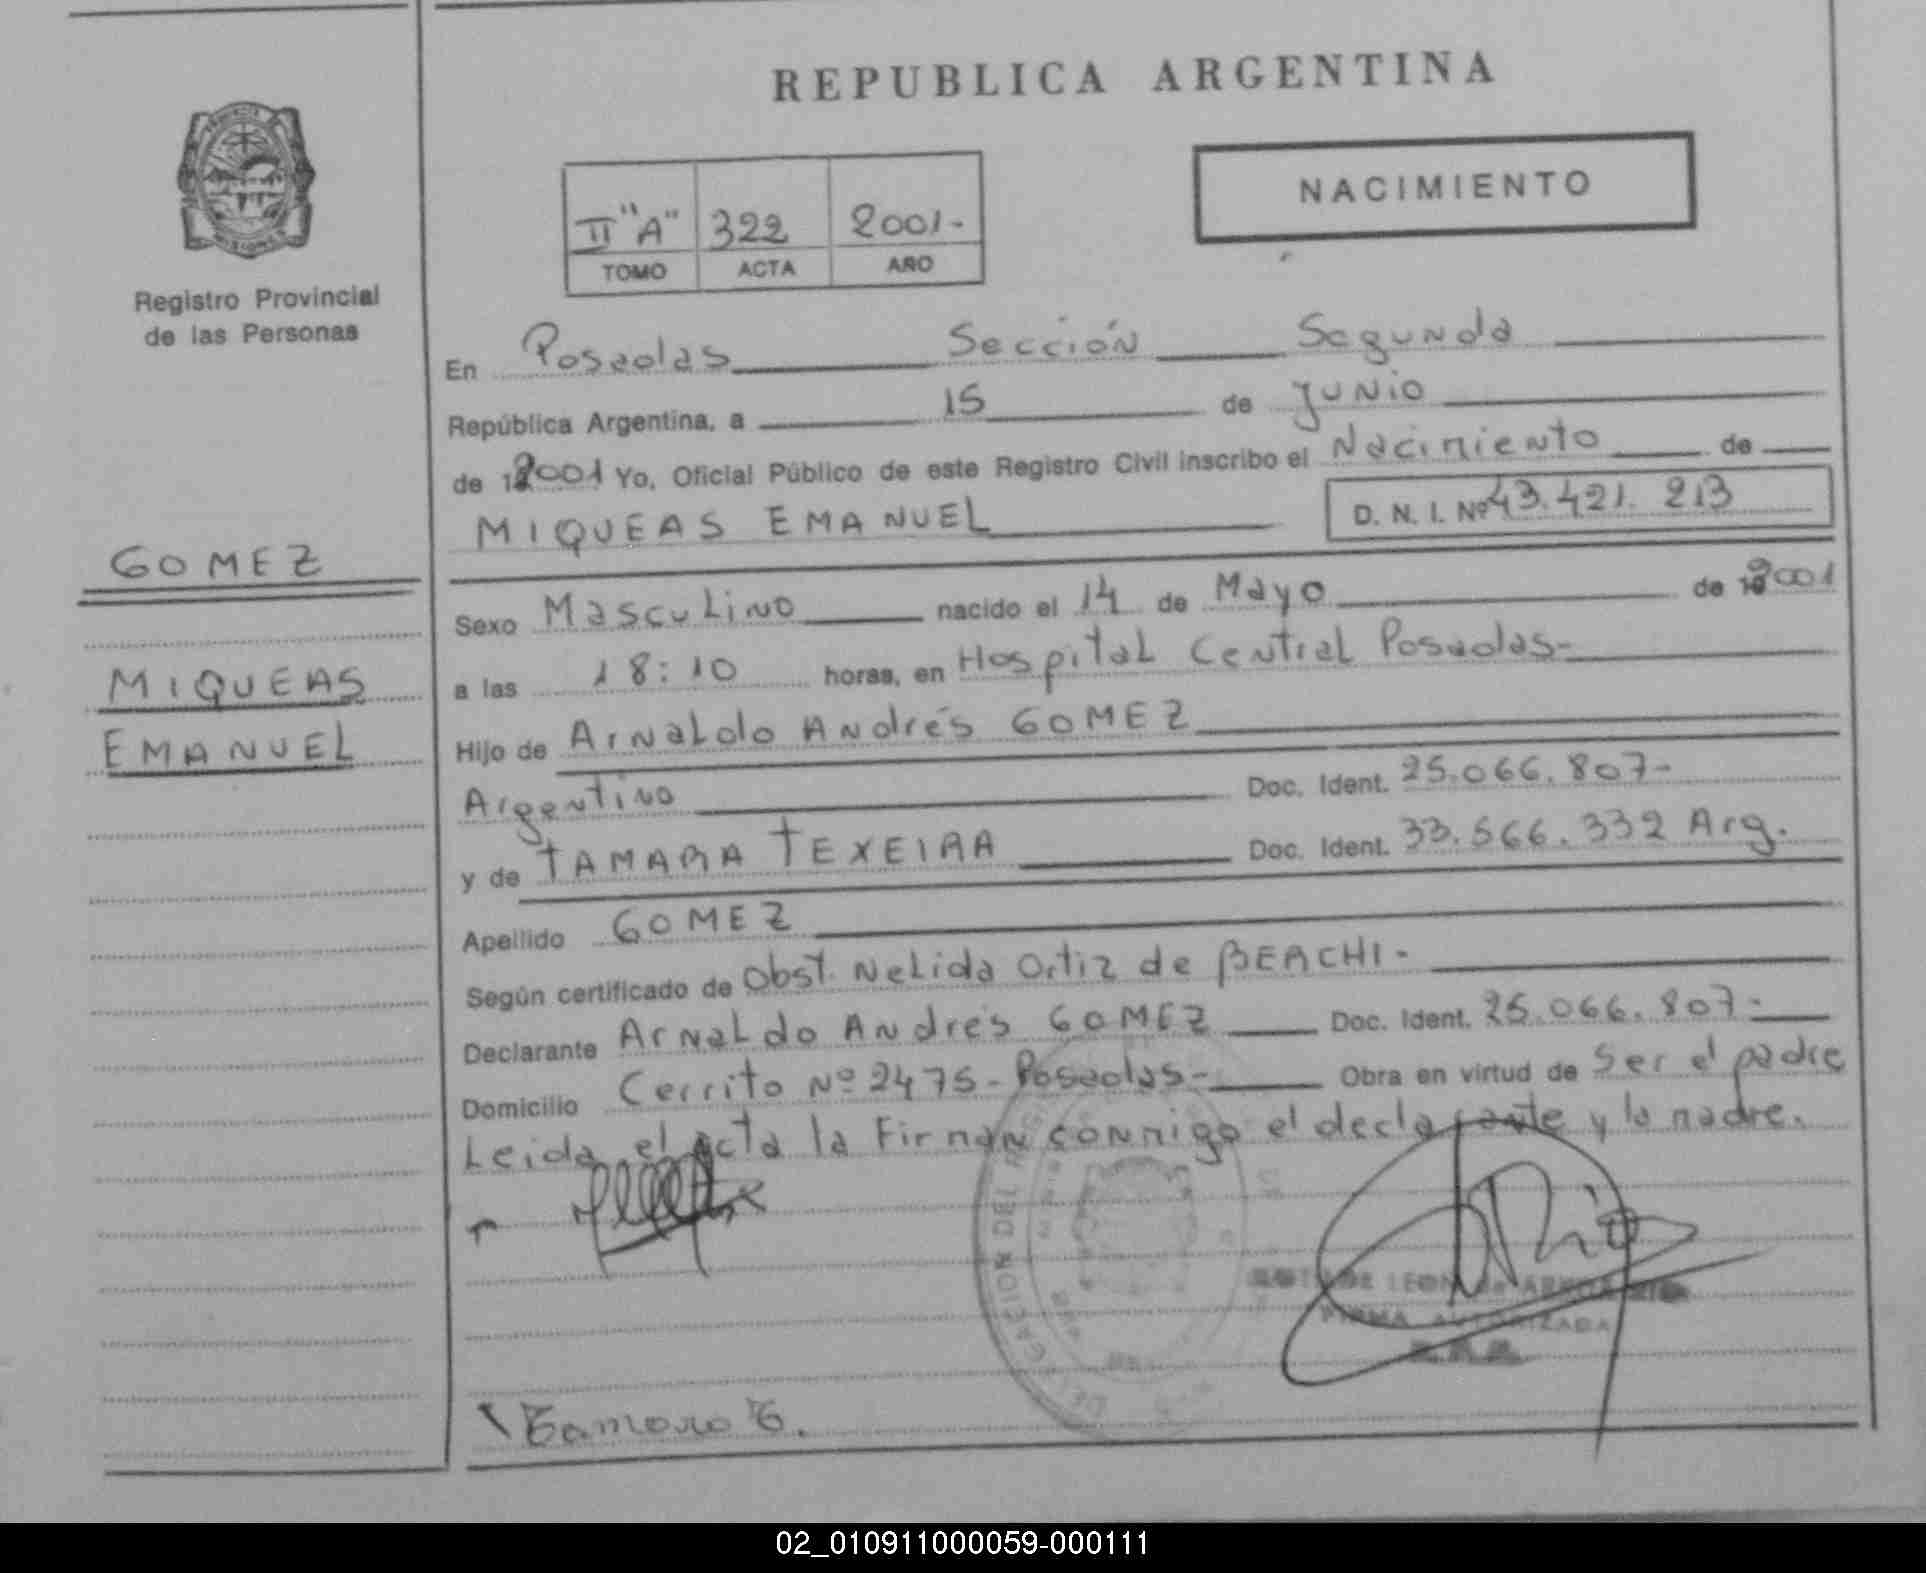 REPUBLICA ARGENTINA
NACIMIENTO
II "A" 322 2001-
TOMO ACTA AÑO
Registro Provincial
de las Personas
En Posadas Sección Segunda
República Argentina, a 15 de Junio
de 2001 Yo, Oficial Público de este Registro Civil inscribo el Nacimiento de
MIQUEAS EMANUEL D. N. I. Nº 43.421.213
GOMEZ
MIQUEAS
EMANUEL
Sexo Masculino nacido el 14 de Mayo de 2001
a las 18:10 horas, en Hospital Central Posadas-
Hijo de Arnaldo Andrés GOMEZ
Argentino Doc. Ident. 25.066.807-
y de TAMARA TEXEIRA Doc. Ident. 33.566.332 Arg.
Apellido GOMEZ
Según certificado de Obst. Nelida Ortiz de BEACHI.-
Declarante Arnaldo Andrés GOMEZ Doc. Ident. 25.066.807.-
Domicilio Cerrito Nº 2475-Posadas- Obra en virtud de Ser el padre
Leida el acta la Firman conmigo el declarante y la madre.
DELEGACION DEL
LEON de
FIRMA AUTORIZADA
Tamara T.
02_010911000059-000111